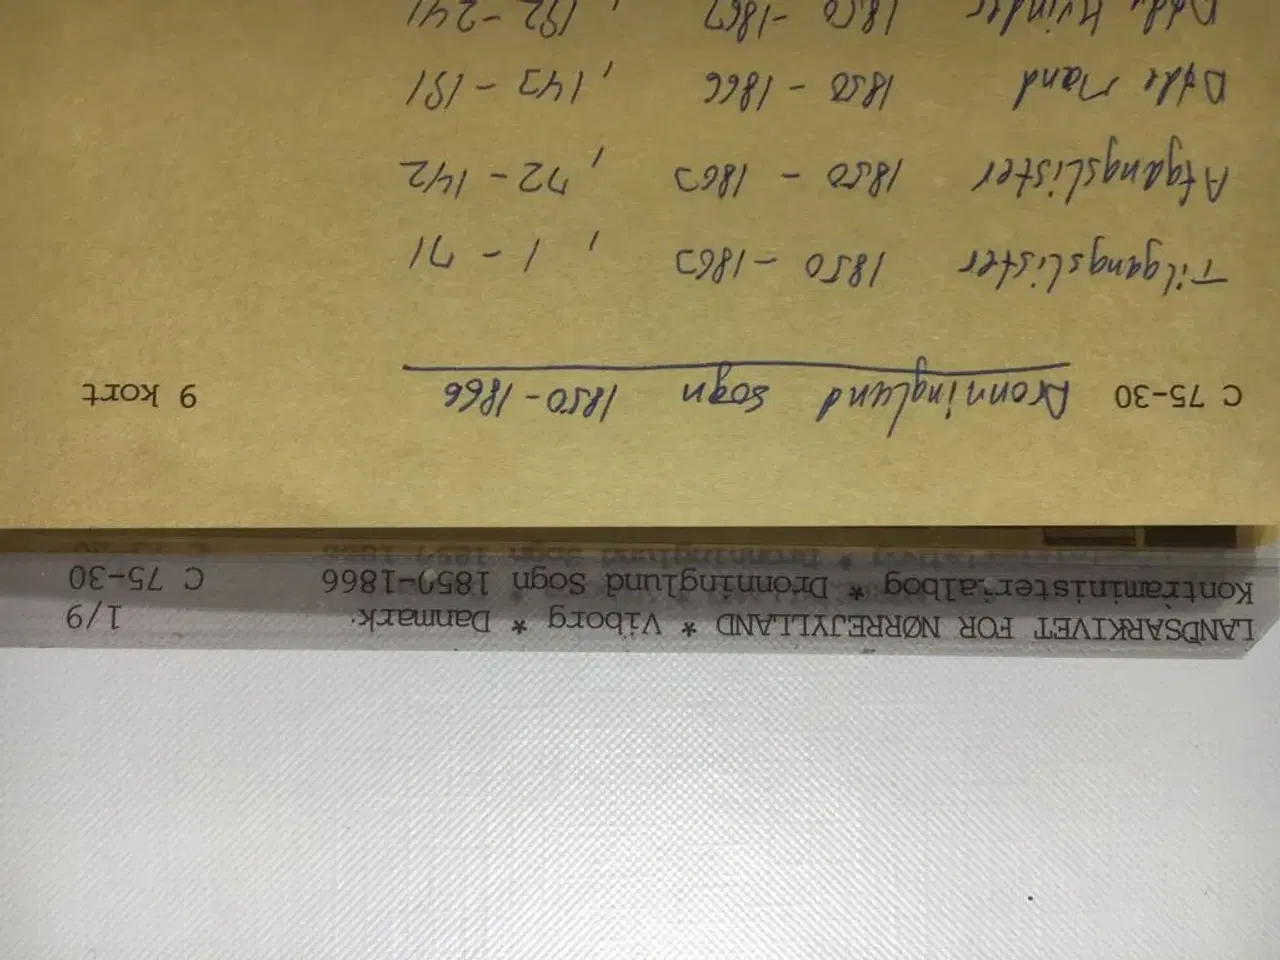 LANDSARKIVET FOR NØRREJYLLAND * Viborg * Danmark. 1/9
Kontraministerialbog * Dronninglund Sogn 1850-1866 C 75-30
C 75-30 Dronninglund Sogn 1850-1866 9 kort
Tilgangslister 1850-1863, 1-71
Afgangslister 1850-1863, 72-142
Døde Mænd 1850-1866, 143-191
Døde Kvinder 1850-1867, 192-241